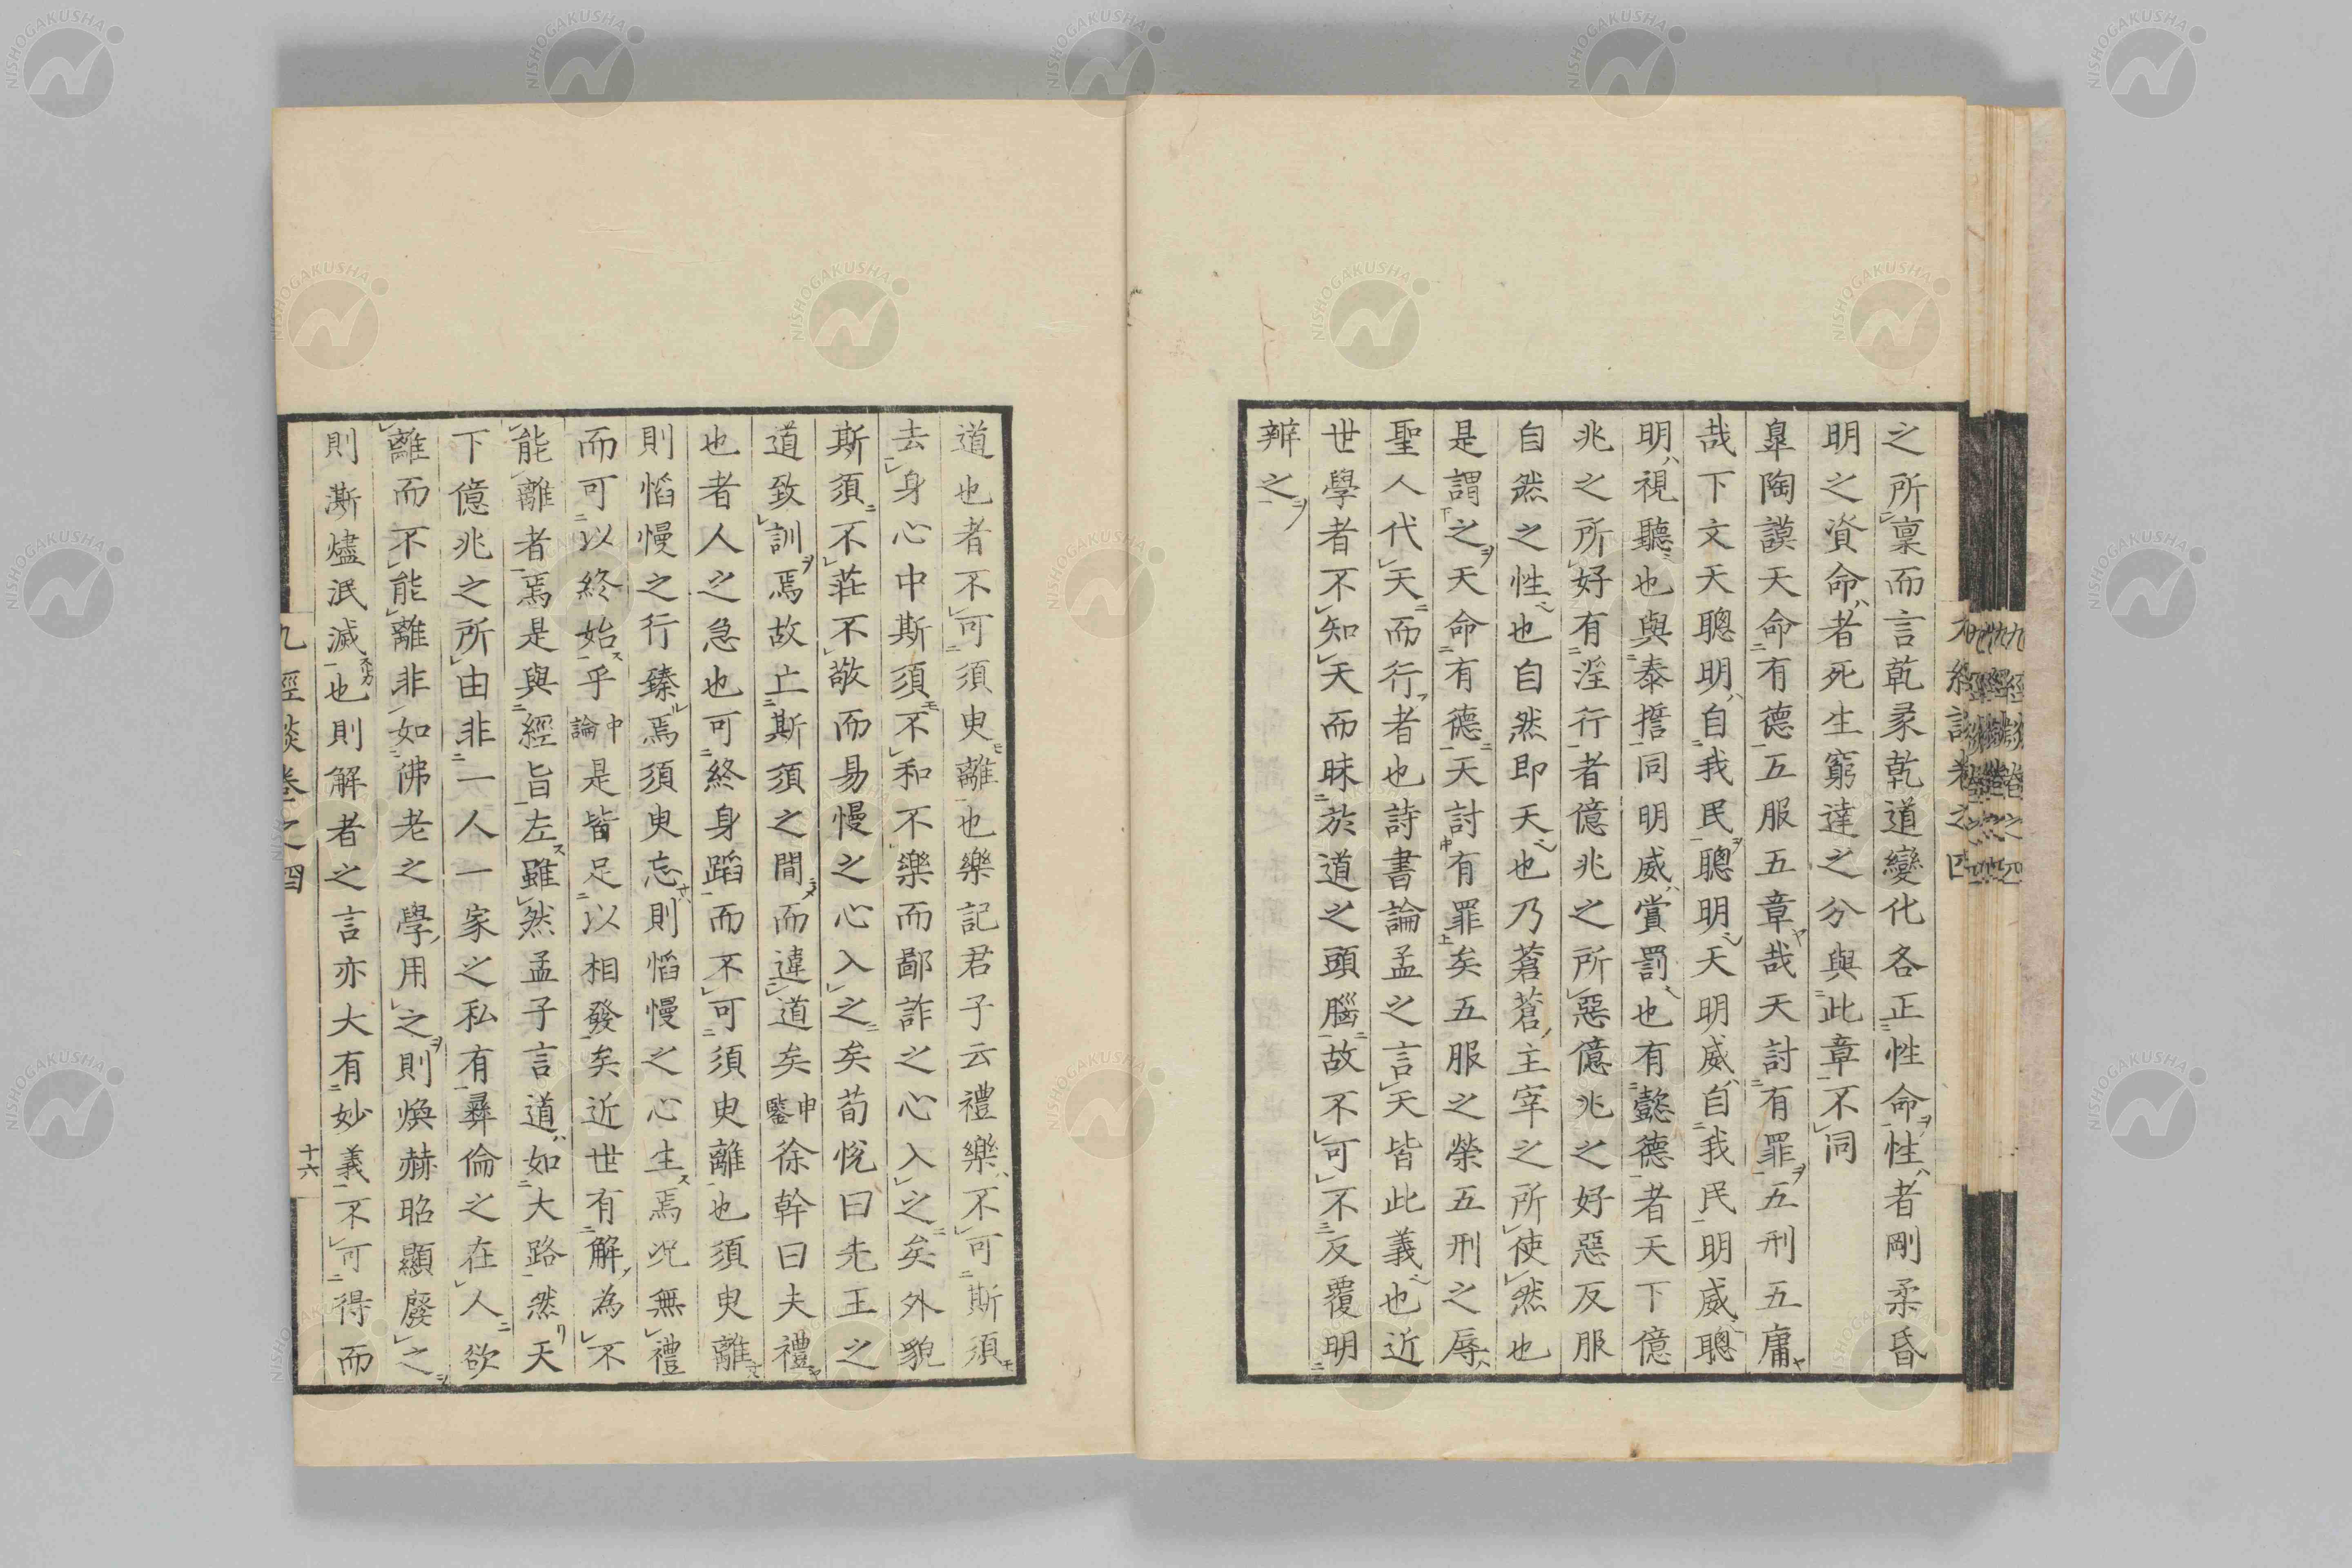 之所稟而言乾彖乾道變化各正性命性者剛柔昏
明之資命者死生窮達之分與此章不同
臯陶謨天命有德五服五章哉天討有罪五刑五庸
哉下文天聰明自我民聰明天明威自我民明威聰
明視聽也與泰誓同明威賞罰也有懿德者天下億
兆之所好有淫行者億兆之所惡億兆之好惡反服
自然之性也自然即天也乃蒼蒼主宰之所使然也
是謂之天命有德天討有罪矣五服之榮五刑之辱
聖人代天而行者也詩書論孟之言天皆此義也近
世學者不知天而昧於道之頭腦故不可不反覆明
辨之
道也者不可須臾離也樂記君子云禮樂不可斯須
去身心中斯須不和不樂而鄙詐之心入之矣外貌
斯須不莊不敬而易慢之心入之矣荀悅曰先王之
道致訓焉故亡斯須之間而違道矣申鑒徐幹曰夫禮
也者人之急也可終身蹈而不可須臾離也須臾離
則慆慢之行臻焉須臾忘則慆慢之心生焉況無禮
而可以終始乎中論是皆足以相發矣近世有解為不
能離者焉是與經旨左雖然孟子言道如大路然天
下億兆之所由非一人一家之私有彝倫之在人欲
離而不能離非如佛老之學用之則煥赫昭顯廢之
則澌燼泯滅也則解者之言亦大有妙義不可得而
九經談卷之四
十六
NISHOGAKUSHA